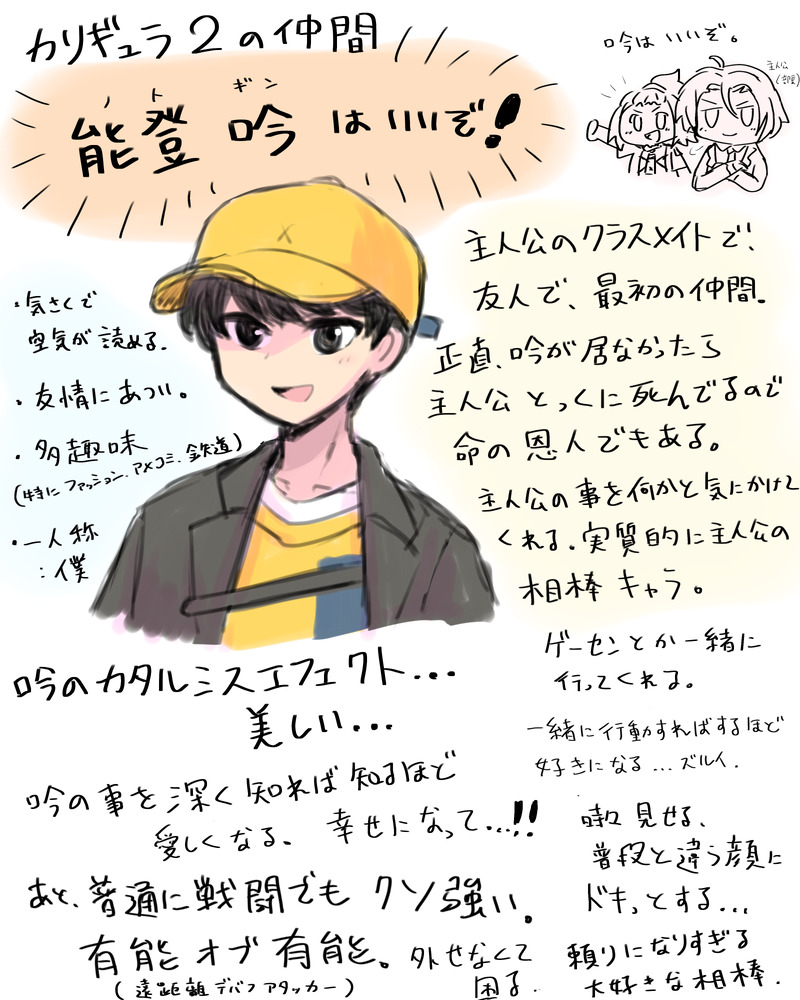 カリギュラ2の仲間
ノト ギン
能登 吟 はいいぞ!
吟は いいぞ。
主人公
主人公のクラスメイトで、
友人で、最初の仲間。
正直、吟が居なかったら
主人公 とっくに死んでるので
命の恩人でもある。
主人公の事を何かと気にかけて
くれる。実質的に主人公の
相棒キャラ。
・気さくで
空気が読める。
・友情にあつい。
・多趣味
(特にファッション、アメコミ、鉄道)
・一人称
:僕
ゲーセンとか一緒に
行ってくれる。
一緒に行動すればするほど
好きになる…ズルイ.
吟のカタルシスエフェクト…
美しい…
吟の事を深く知れば知るほど
愛しくなる。 幸せになって…!!
時々見せる、
普段と違う顔に
ドキっとする…
あと、普通に戦闘でもクソ強い。
有能オブ有能。 外せなくて
困る.
(遠距離デバフアタッカー)
頼りになりすぎる
大好きな相棒.